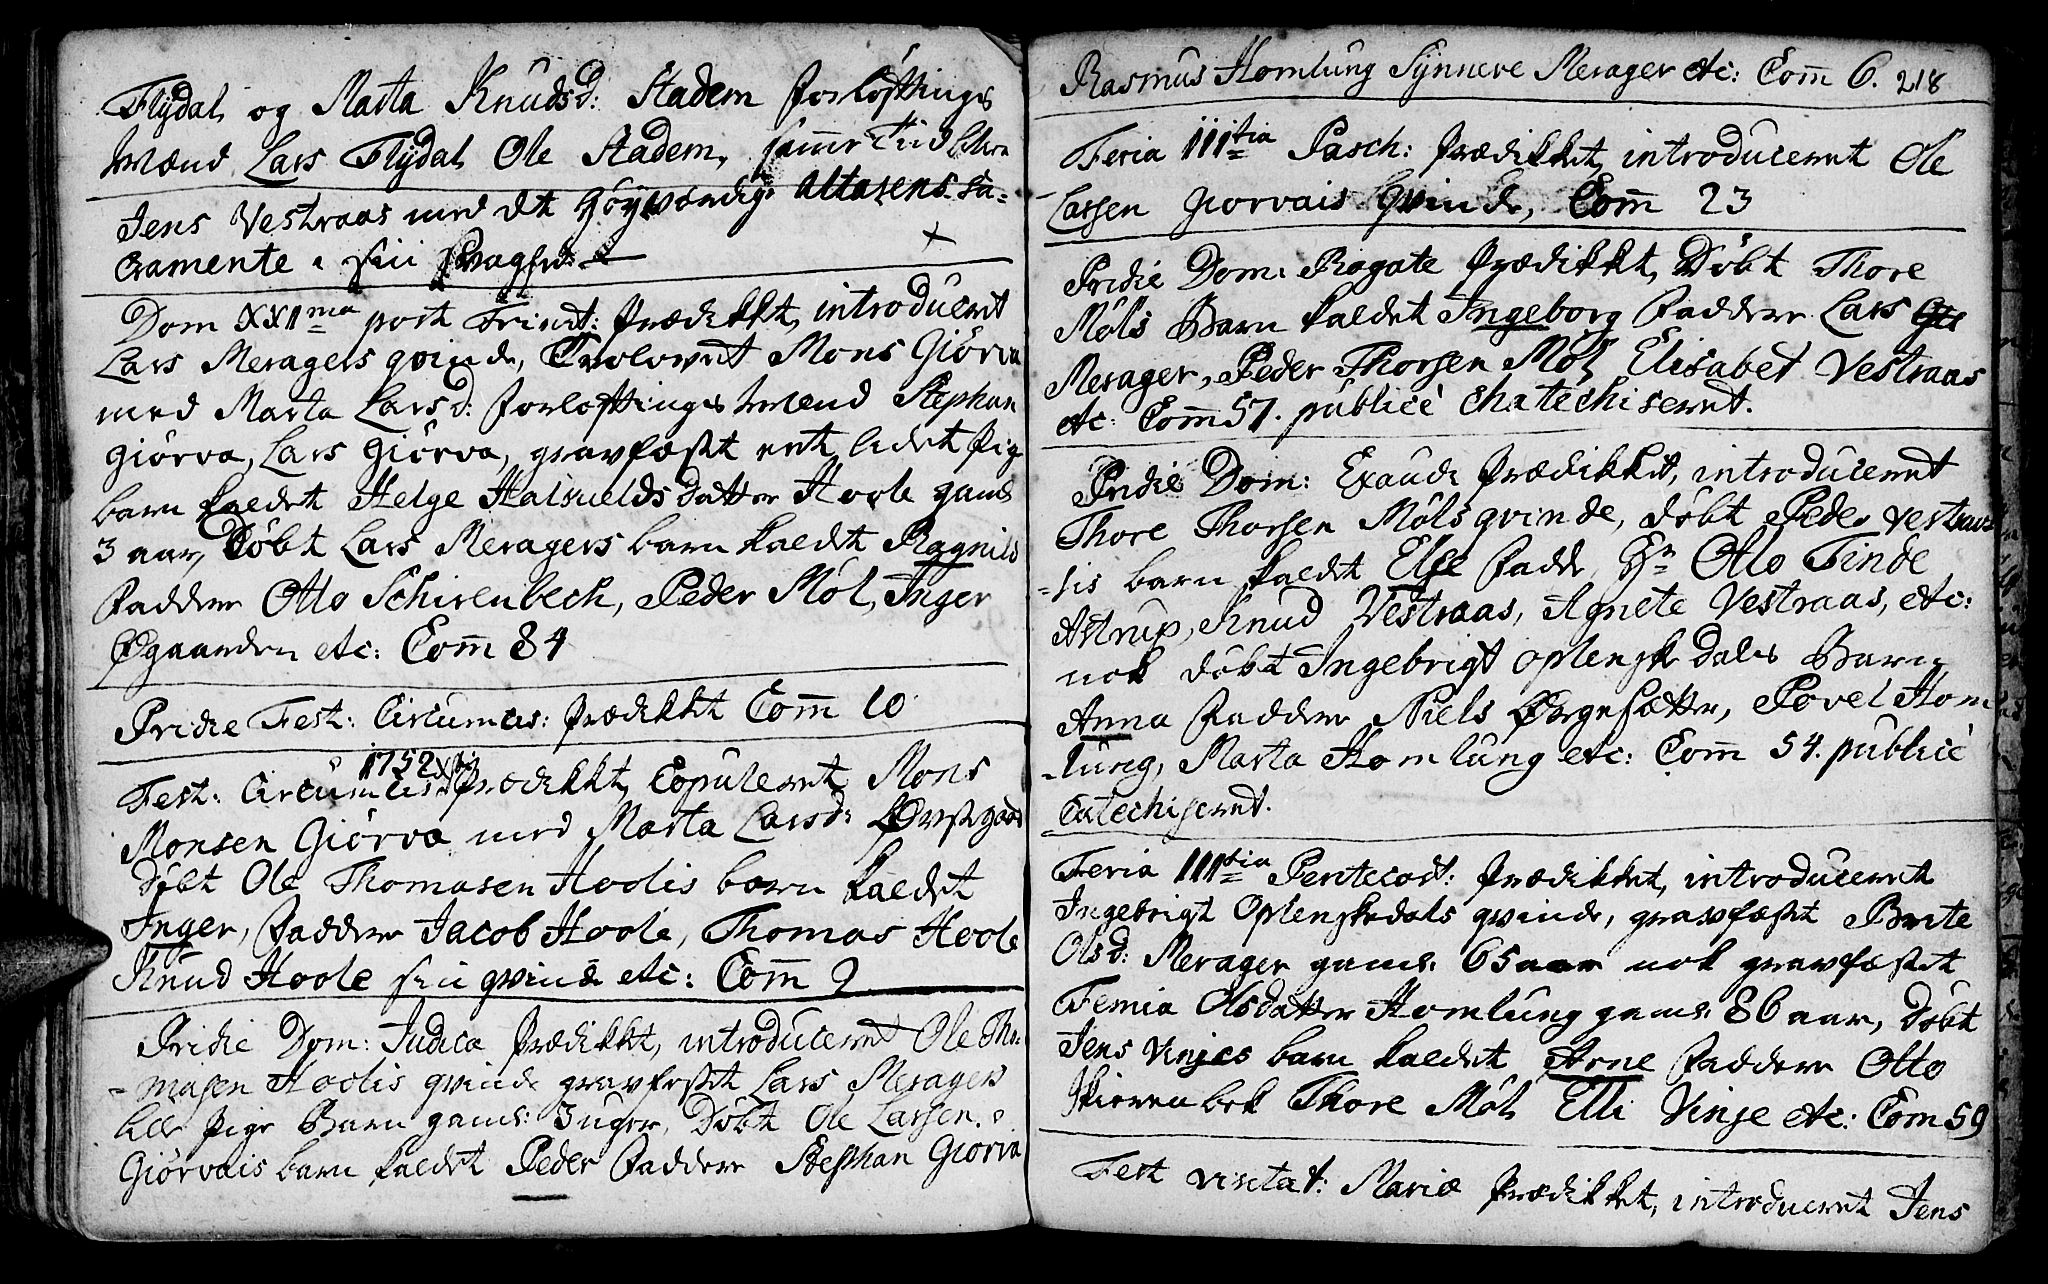 Flydal og Marta Knudsd: Stadem forløftings
Mænd Lars Flydal Ole Stadem, samme Tid
Jens Vestraas med det høyværdige altarens Sa=
cramente i sin Svaghed
Dom XXIma post Trinit: prædikket, introduceret
Lars Meragers qvinde, Trolovet Mons Giörva
med Marta Larsd: forløftings Mænd Stephan
Giörva, Lars Giörva, gravfæstet et lidet pige
barn kaldet Helge Halvuelds datter Hoole gaml
3 aar, Döbt Lars Meragers barn kaldet Ragnild
Faddere Otto Schirenbech, Peder Möl, Inger
Ödgaarden etc: Com̄ 84
Pridie Fest: Circumcis: prædikket Com̄ 10
1752
Fest: Circumcis: prædikket, Copuleret Mons
Monsen Giörva med Marta Larsd:
Döbt Ole Thomasen Hoolis barn kaldet
Inger, Faddere Jacob Hoole, Thomas Hoole
Knud Hoole sin qvinde etc: Com̄ 9
Pridie Dom: Judica prædikket, introduceret Ole Tho-
-masen Hoolis qvinde gravfæstet Lars Meragers
lille pige Barn gaml: 3 uger, Döbt Ole Larsen
Giörvais barn kaldet Peder Faddere Stephan Giorva
Rasmus Homlung Synneve Merager etc: Com̄ 6. 218
Feria IIItia Pasch: prædikket, introduceret Ole
Larsen Giorvais Qvinde, Com̄ 23
Pridie Dom: Rogate prædikket, Döbt Thore
Möls Barn kaldet Ingeborg Faddere Lars
Merager, Peder Thorsen Möl Elisabet Vestraas
etc: Com̄ 57. publice chatechiseret.
Pridie Dom: Exaudi prædikket, introduceret
Thore Thorsen Möls qvinde, döbt Peder Vestraas
=sis barn kaldet Else Fadde Hr Otto Finde
Astrup, Knud Vestraas, Agnete Vestraas, etc:
nok döbt Ingebrigt oplenskedals Barn
Anna Faddere Niels Ørgesætter, Povel Hom
-lung, Marta Homlung etc: Com̄ 54. publicé
Catechiseret.
Feria IIItia Pentecost: prædikket, introduceret
Ingebrigt Oplenskedals qvinde, gravfæstet Brite
Olsd: Merager gaml: 65 aar nok gravfæstet
Femia Olsdatter Homlung gaml: 86 aar, Döbt
Jens Vinjes barn kaldet Arne Faddere Otto
Skirenbek Thore Möl Elli Vinje etc: Com̄ 59
Fest visitat: Mariæ prædikket, introduceret Jens